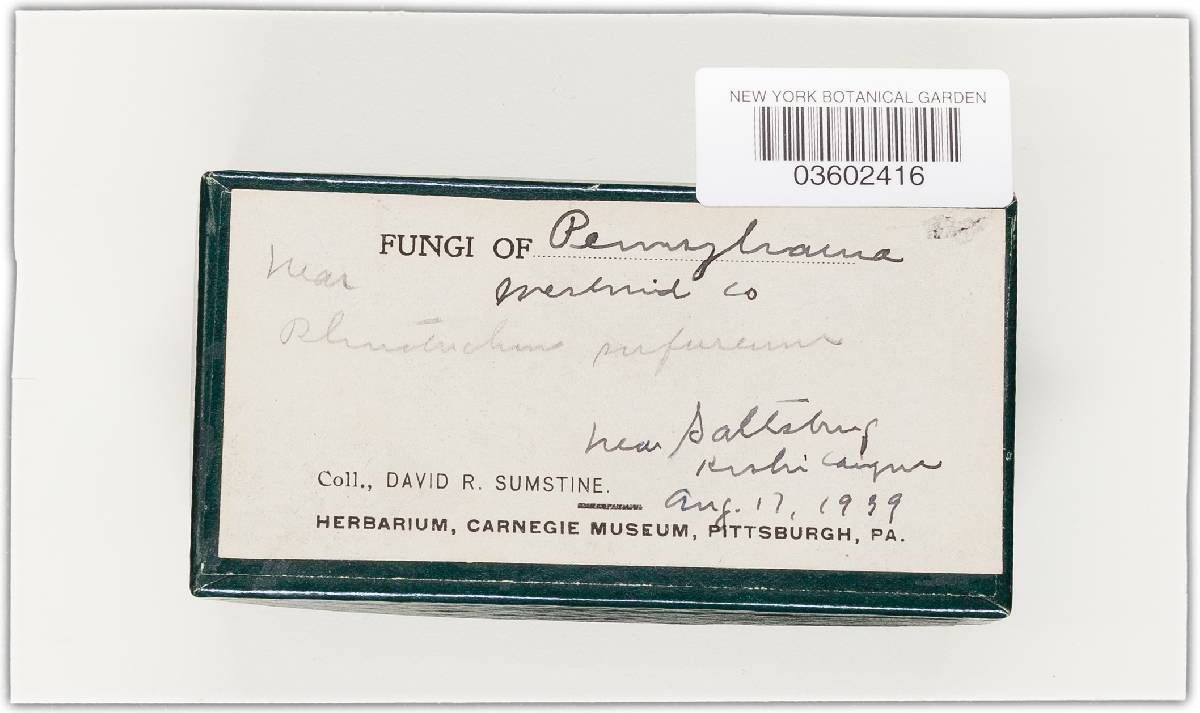 NEW YORK BOTANICAL GARDEN
03602416
FUNGI OF Pennsylvania
near
Co
near Saltsburg
Coll., DAVID R. SUMSTINE.
Aug. 17, 1939
HERBARIUM, CARNEGIE MUSEUM, PITTSBURGH, PA.